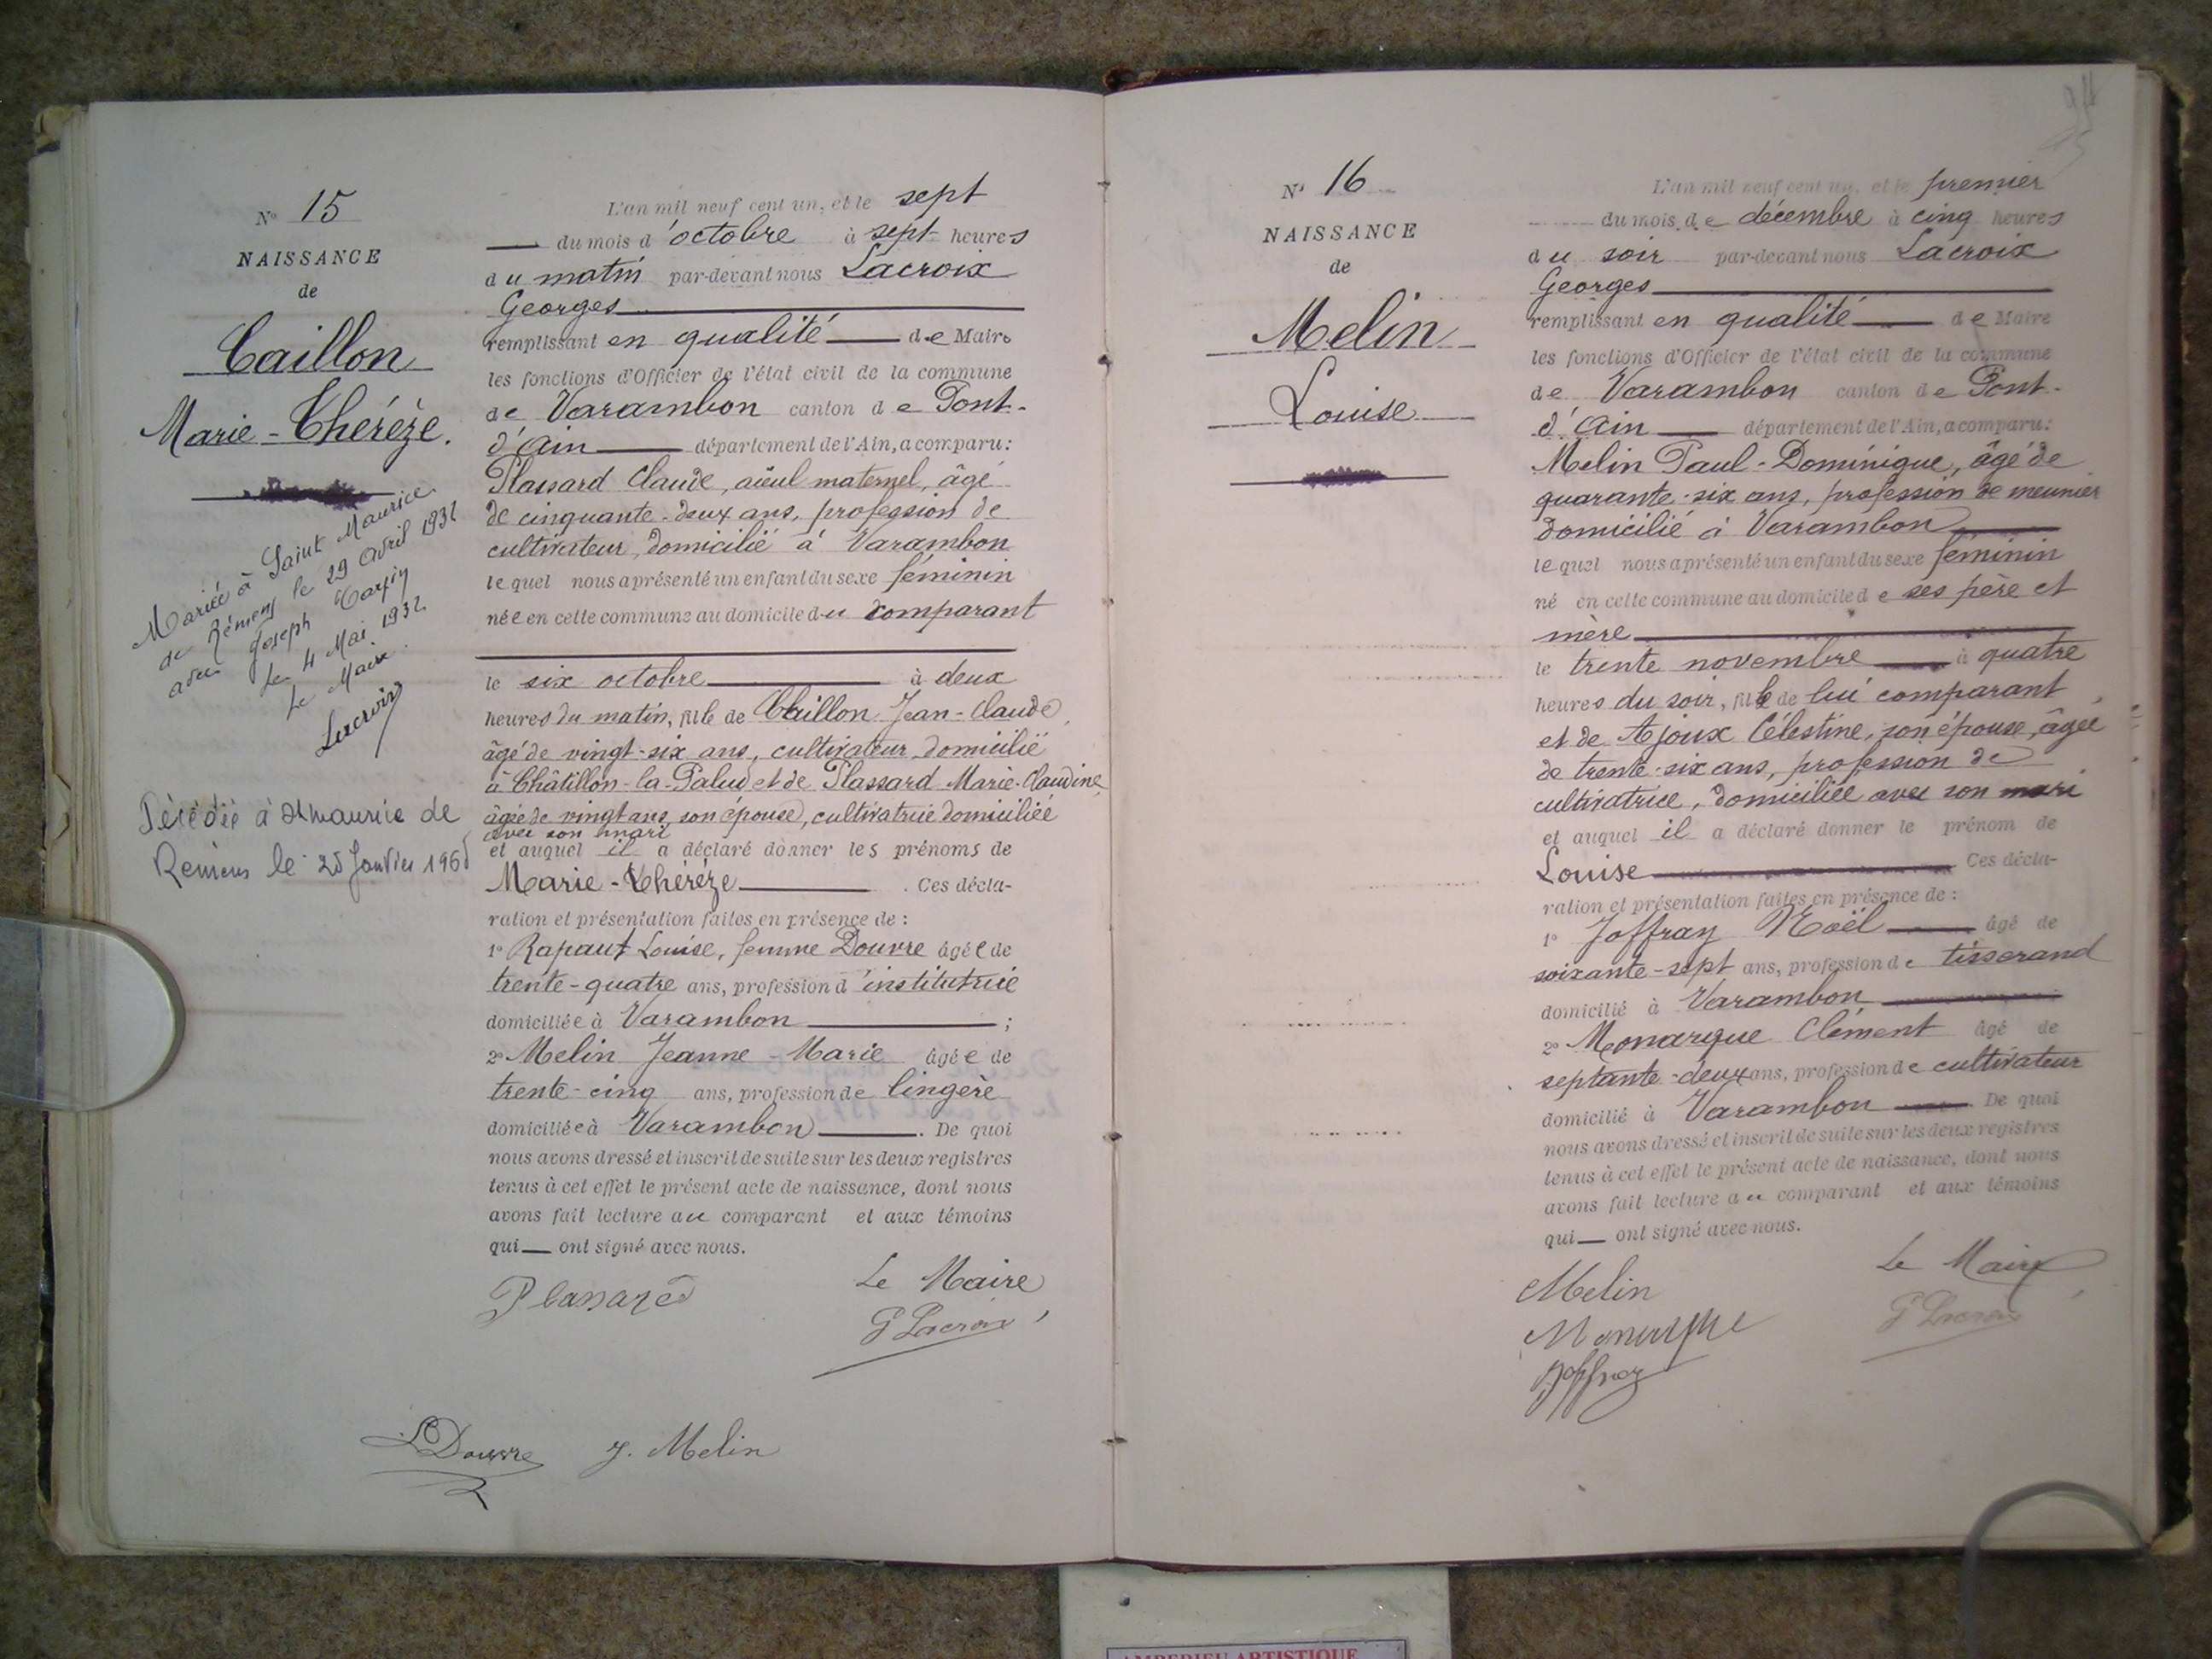 No 15
NAISSANCE
de
Caillon
Marie-Thérèze.
Mariée à Saint Maurice
de Rémens le 29 Avril 1932
avec Joseph
Le 4 Mai 1932
Le Maire
Lacroix
Décédée à St maurice de
Remens le 25 Janvier 196
L'an mil neuf cent un, et le sept
du mois d'octobre à sept heures
du matin par-devant nous Lacroix
Georges
remplissant en qualité de Maire
les fonctions d'Officier de l'état civil de la commune
de Varambon canton de Pont-
d'Ain département de l'Ain, a comparu:
Plassard Claude, aïeul maternel, âgé
de cinquante-deux ans, profession de
cultivateur, domicilié à Varambon
lequel nous a présenté un enfant du sexe féminin
née en cette commune au domicile du comparant
le six octobre à deux
heures du matin, fille de Caillon Jean-Claude,
âgé de vingt-six ans, cultivateur domicilié
à Châtillon-la-Palud et de Plassard Marie-Claudine
âgée de vingt ans, son épouse, cultivatrice domiciliée
avec son mari
et auquel il a déclaré donner les prénoms de
Marie-Thérèze. Ces décla-
ration et présentation faites en présence de:
1º Rapaut Louise, femme Douvre âgée de
trente-quatre ans, profession d'institutrice
domiciliée à Varambon;
2º Melin Jeanne-Marie âgée de
trente-cinq ans, profession de lingère
domiciliée à Varambon. De quoi
nous avons dressé et inscrit de suite sur les deux registres
tenus à cet effet le présent acte de naissance, dont nous
avons fait lecture au comparant et aux témoins
qui ont signé avec nous.
Plassard Le Maire
G Lacroix
L Douvre J. Melin
No 16
NAISSANCE
de
Melin
Louise
L'an mil neuf cent un, et le premier
du mois de décembre à cinq heures
du soir par-devant nous Lacroix
Georges
remplissant en qualité de Maire
les fonctions d'Officier de l'état civil de la commune
de Varambon canton de Pont-
d'Ain département de l'Ain, a comparu:
Melin Paul-Dominique, âgé de
quarante-six ans, profession de meunier
domicilié à Varambon
lequel nous a présenté un enfant du sexe féminin
né en cette commune au domicile de ses père et
mère
le trente novembre à quatre
heures du soir, fille de lui comparant
et de Ajoux Célestine, son épouse, âgée
de trente-six ans, profession de
cultivatrice, domiciliée avec son mari
et auquel il a déclaré donner le prénom de
Louise Ces décla-
ration et présentation faites en présence de:
1º Joffray Noël âgé de
soixante-sept ans, profession de tisserand
domicilié à Varambon
2º Monarque Clément âgé de
septante-deux ans, profession de cultivateur
domicilié à Varambon De quoi
nous avons dressé et inscrit de suite sur les deux registres
tenus à cet effet le présent acte de naissance, dont nous
avons fait lecture au comparant et aux témoins
qui ont signé avec nous.
Melin Le Maire
Monarque G Lacroix
Joffray
AMBERIEU ARTISTIQUE